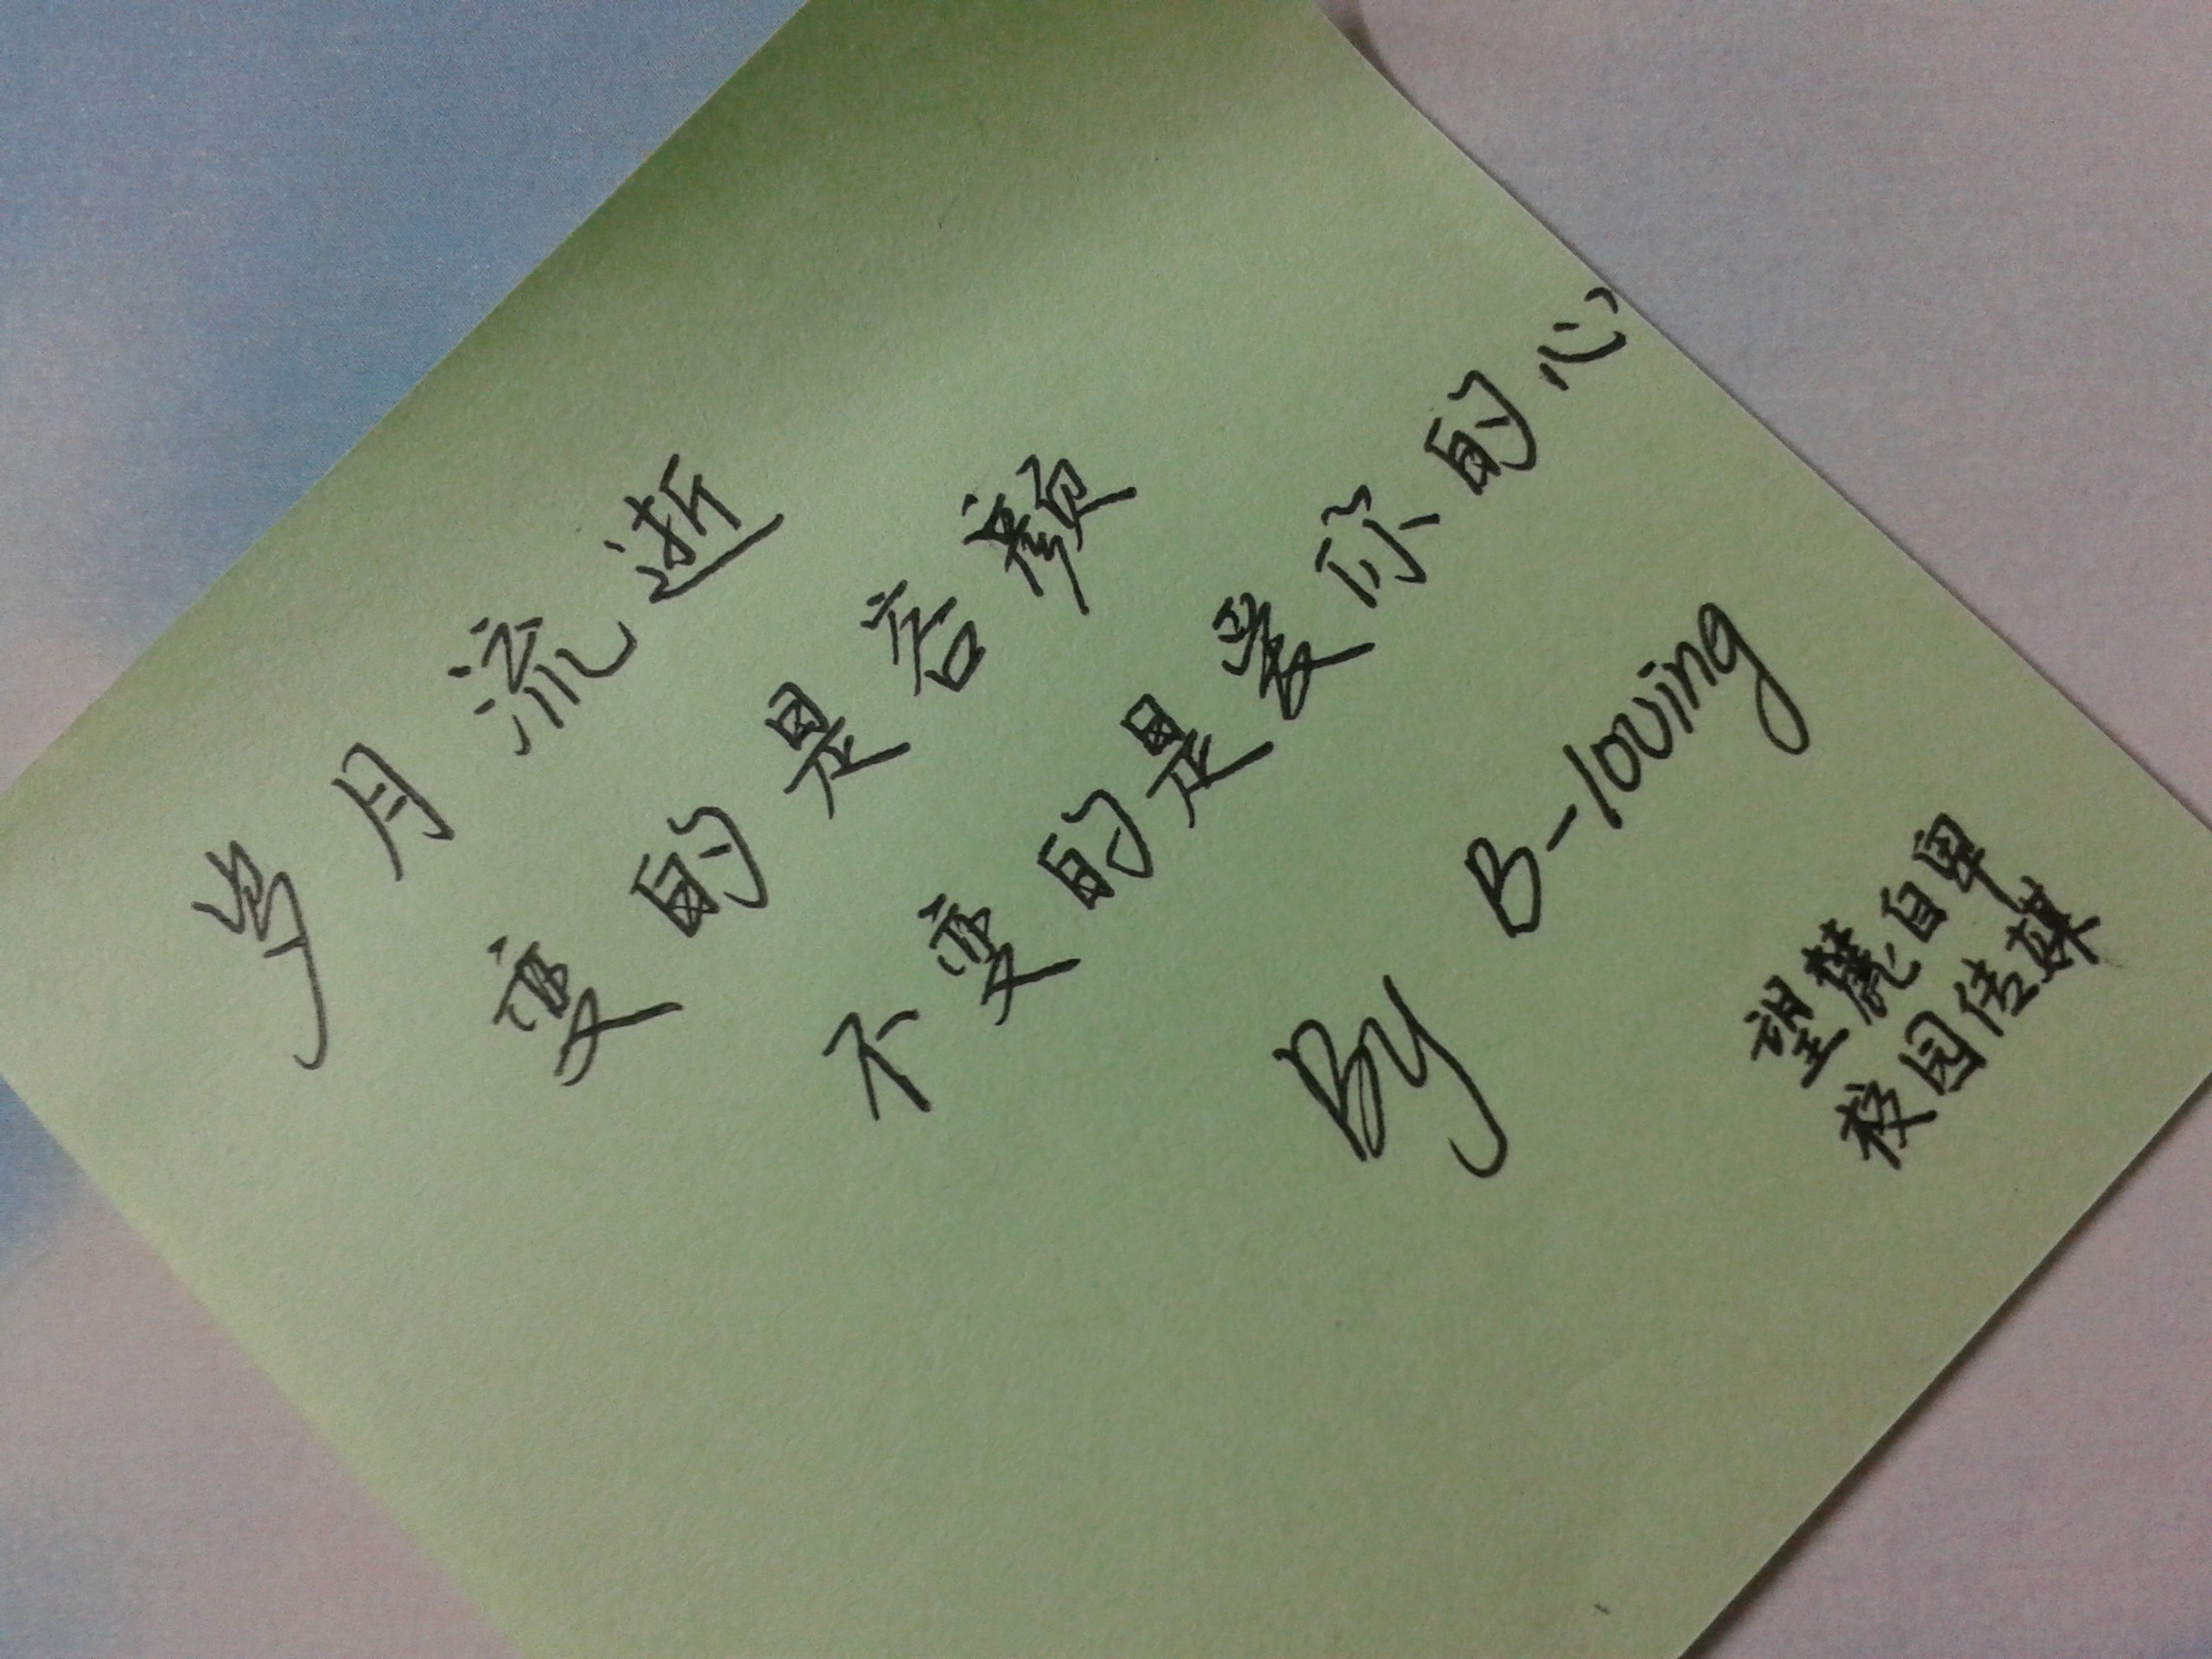 岁月流逝
变的是容颜
不变的是爱你的心
By B-loving
望麓自卑
校园传媒